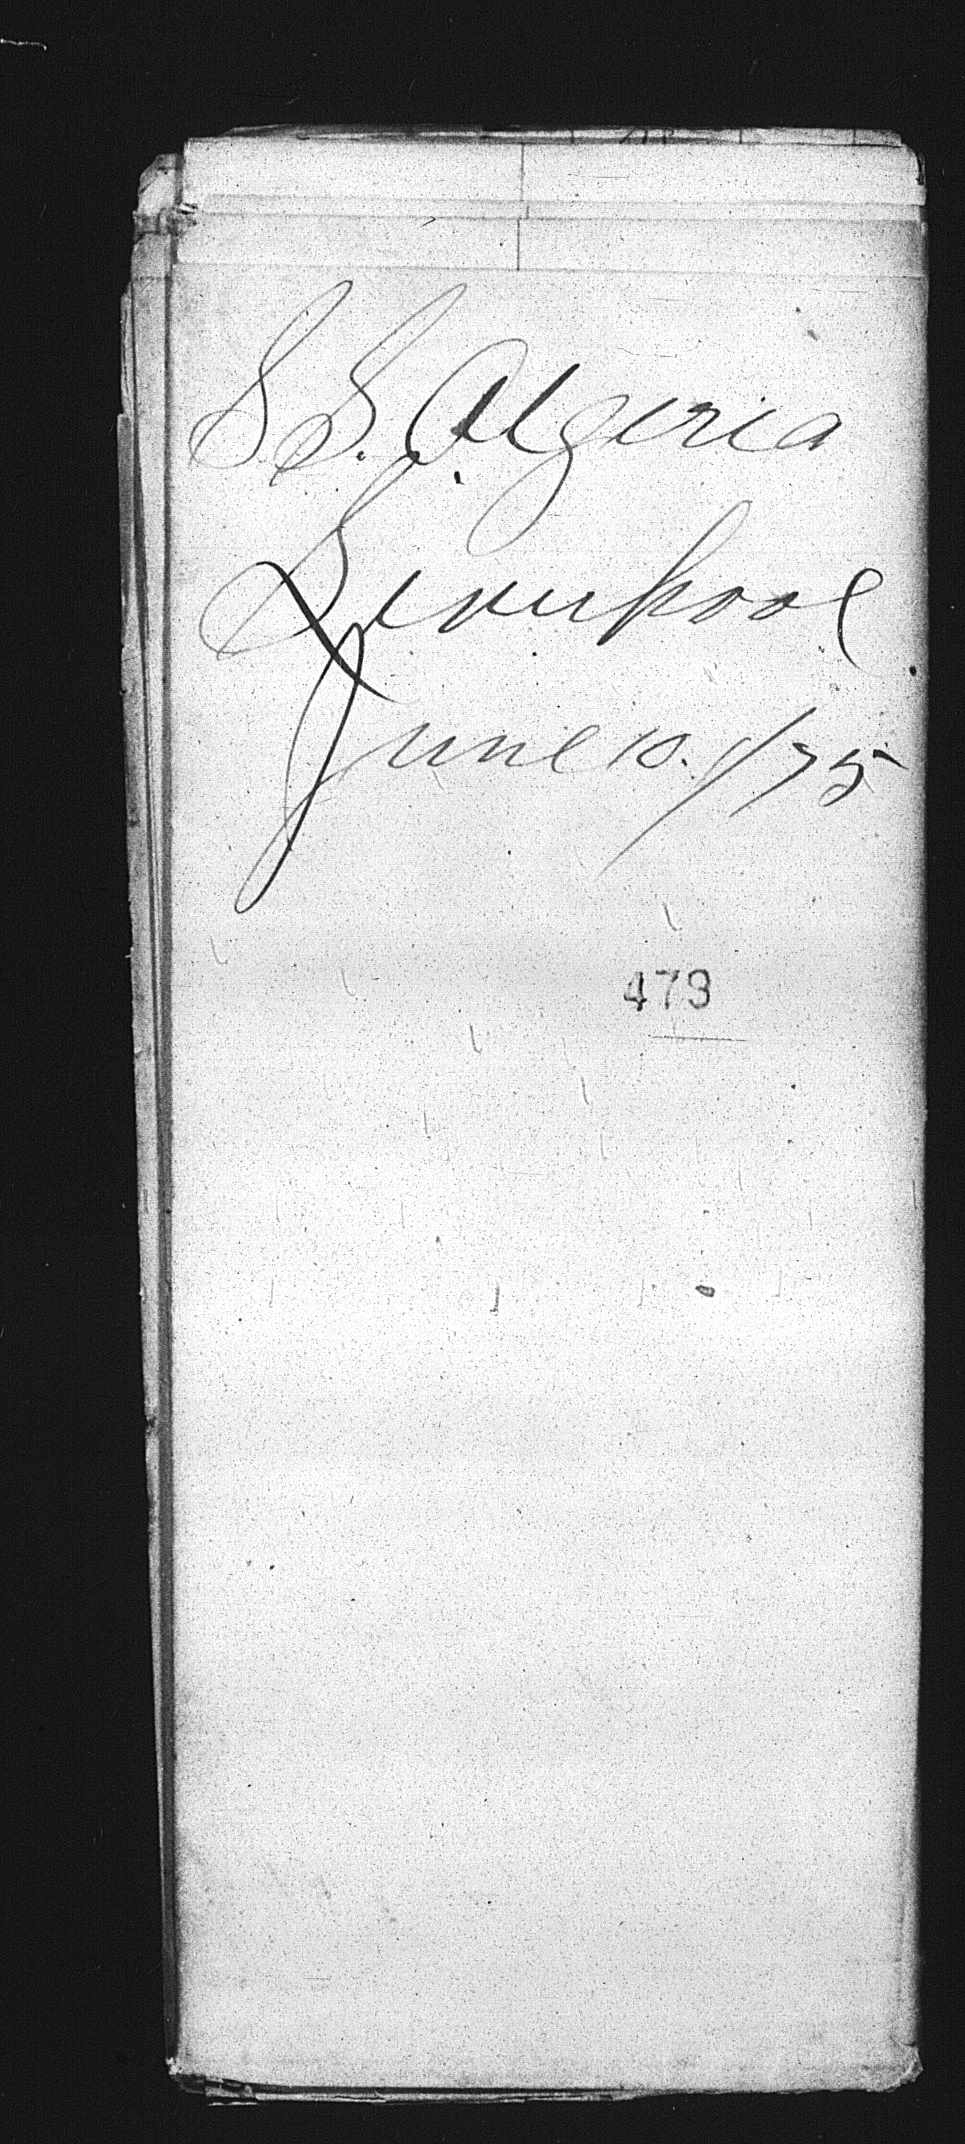 S.S. Algeria
Liverpool
June 10. /75
473